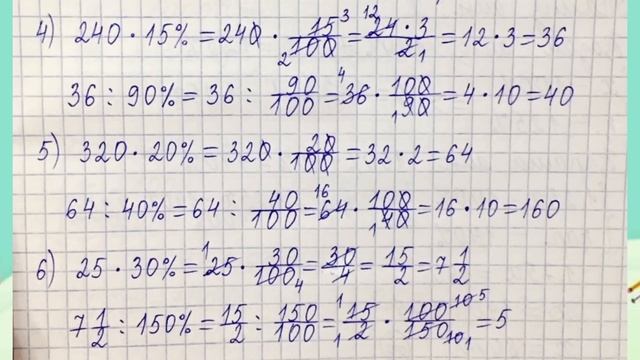 4) 240 · 15% = 240 · 15/100 = 24 · 3/2 = 12 · 3 = 36
36 : 90% = 36 : 90/100 = 36 · 100/90 = 4 · 10 = 40
5) 320 · 20% = 320 · 20/100 = 32 · 2 = 64
64 : 40% = 64 : 40/100 = 64 · 100/40 = 16 · 10 = 160
6) 25 · 30% = 25 · 30/100 = 30/4 = 15/2 = 7 1/2
7 1/2 : 150% = 15/2 : 150/100 = 15/2 · 100/150 = 5